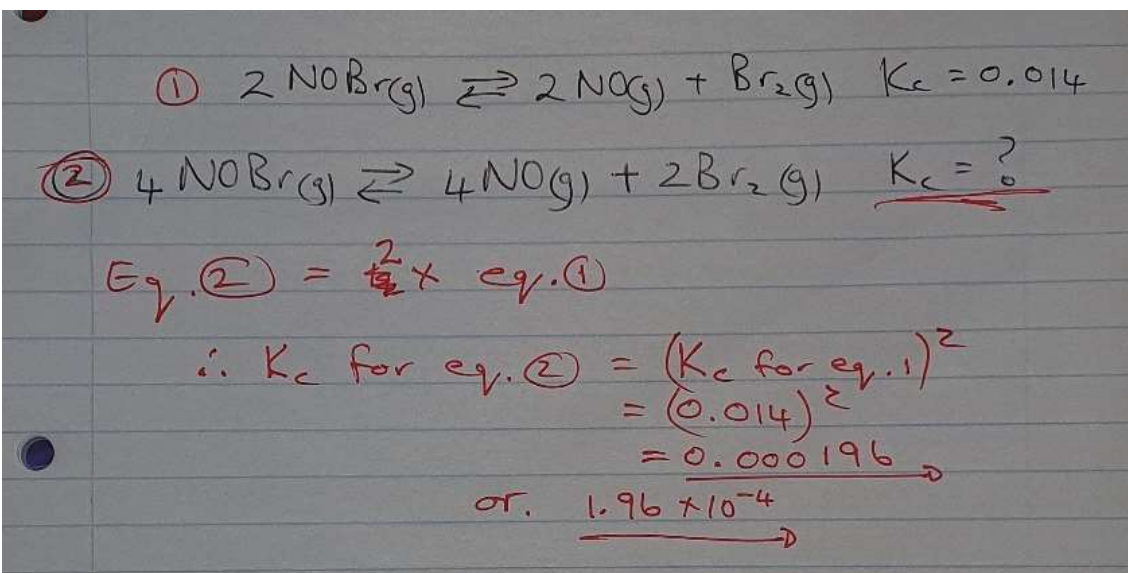 ① 2 NOBr(g) ⇄ 2 NO(g) + Br₂(g) Kc = 0.014
② 4 NOBr(g) ⇄ 4 NO(g) + 2Br₂(g) Kc = ?
Eq.② = 2 × eq.①
∴ Kc for eq.② = (Kc for eq.1)²
= (0.014)²
= 0.000196
or. 1.96 × 10⁻⁴